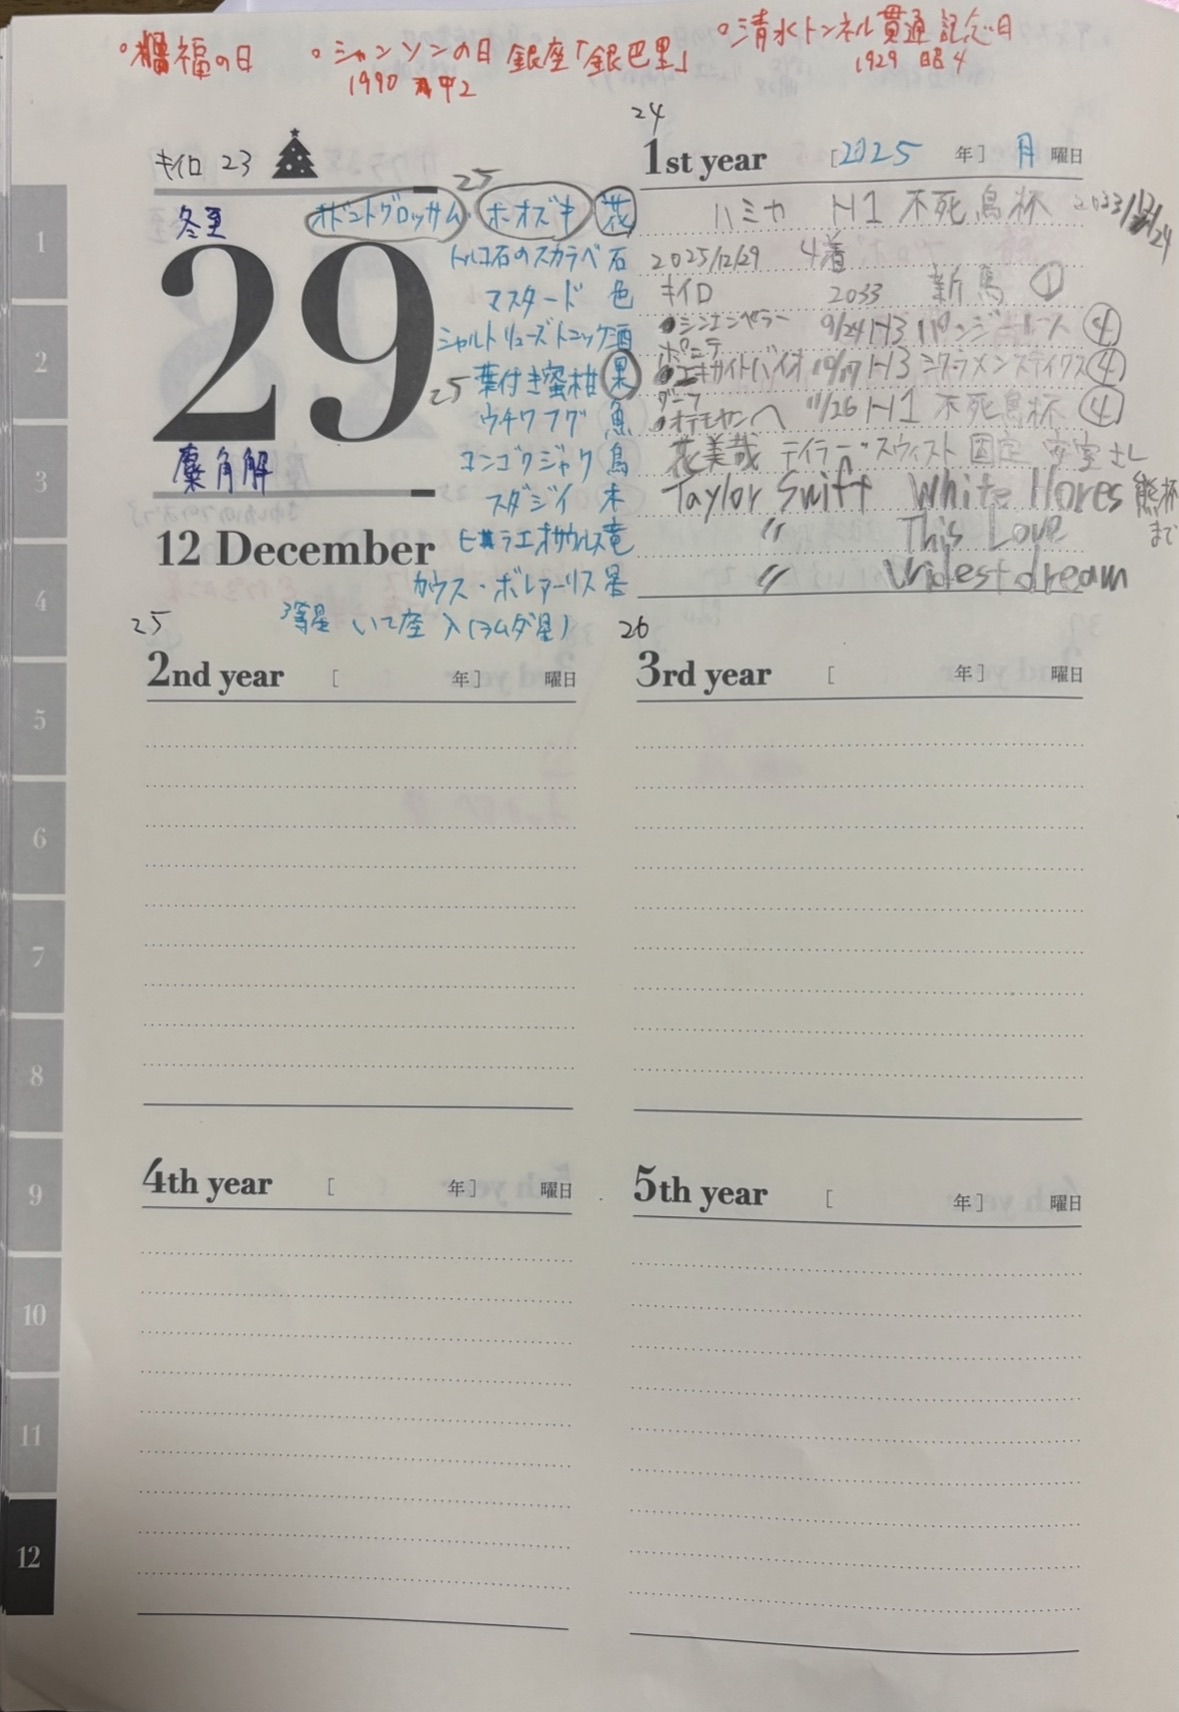 福の日
シャンソンの日 銀座「銀巴里」
1990
清水トンネル貫通記念日
1929 昭4
キイロ 23
冬至
29
麋角解
12 December
25
オドントグロッサム ホオズキ 花
トルコ石のスカラベ 石
マスタード 色
シャルトリューズトニック 酒
25 葉付き蜜柑 果
ウチワフグ 魚
コンゴウジャク 鳥
スダジイ 木
竜
カウス・ボレアーリス 星
3等星 いて座 λ(ラムダ星)
24
1st year [2025 年] 月 曜日
ハミヤ H1 不死鳥杯 2023/12/24
2025/12/29 4着
キイロ 2033 新馬 ①
シンエンペラー 9/24 H3 ④
エキサイトバイオ 10/17 H3 シクラメンステイクス ④
オテモヤン 11/26 H1 不死鳥杯 ④
花美哉 テイラースウィスト 固定
Taylor Swift White Hores 熊杯まで
〃 This Love
〃 Wildest dream
25
2nd year [ 年] 曜日
26
3rd year [ 年] 曜日
4th year [ 年] 曜日
5th year [ 年] 曜日
1
2
3
4
5
6
7
8
9
10
11
12